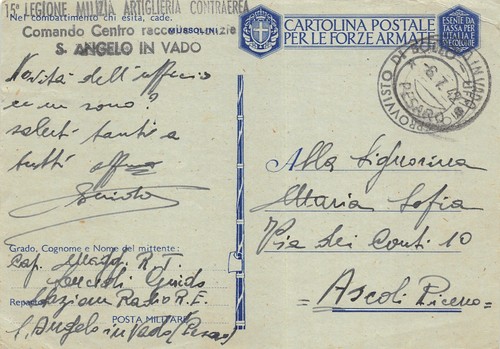 15ª LEGIONE MILIZIA ARTIGLIERIA CONTRAEREA
Nel combattimento chi esita, cade.
MUSSOLINI
Comando Centro raccolta notizie
S. ANGELO IN VADO
Novità dell'ufficio
ce ne sono?
saluti tanti a
tutti
Guido
CARTOLINA POSTALE
PER LE FORZE ARMATE
ESENTE DA
TASSA PER
L'ITALIA E
SUE COLONIE
SPROVVISTO DI BOLLO
PESARO
Alla Signorina
Maria Sofia
Via dei Conti 10
Ascoli Piceno
Grado, Cognome e Nome del mittente:
Cap. Magg. R.T.
Guido
Reparto
Stazione Radio R.E.
POSTA MILITARE
S. Angelo in Vado (Pesaro)